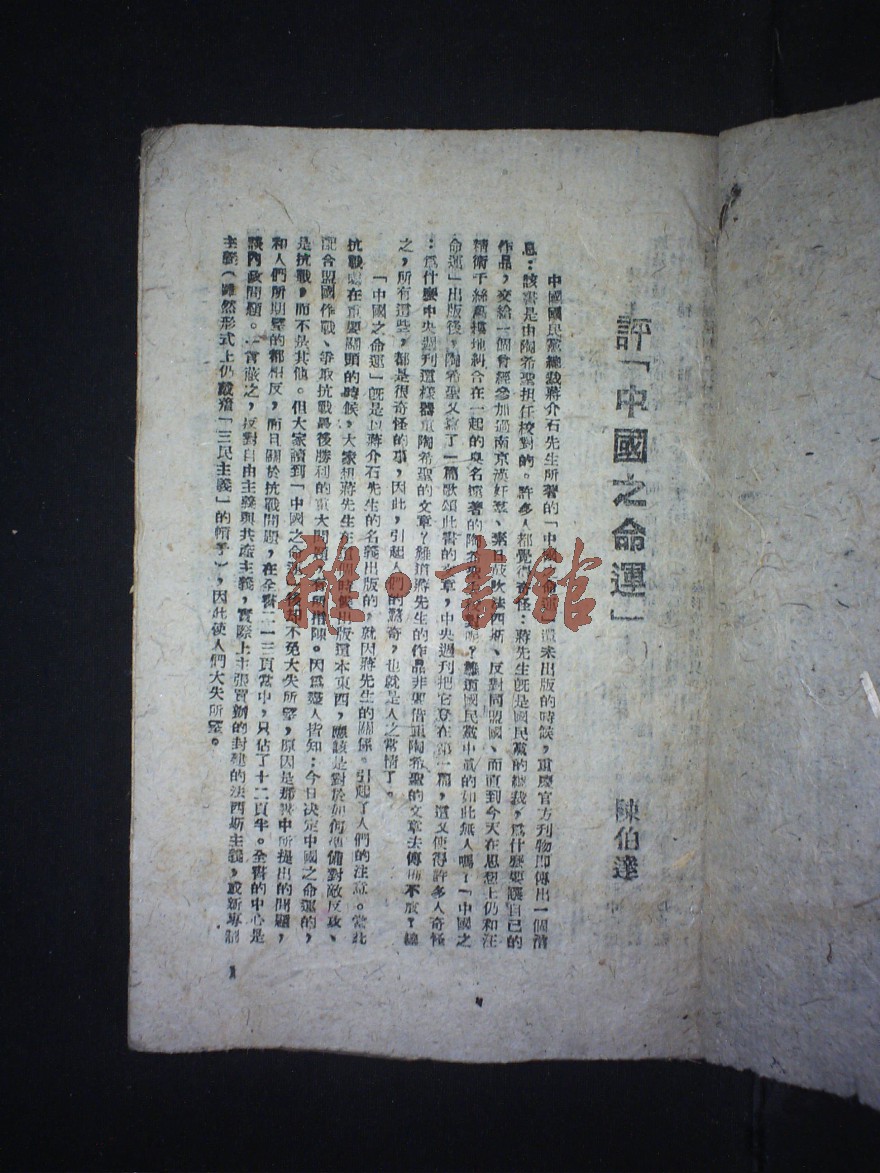 評「中國之命運」
陳伯達
中國國民黨總裁蔣介石先生所著的「中國之命運」還未出版的時候，重慶官方刊物即傳出一個消
息：該書是由陶希聖担任校對的。許多人都覺得奇怪：蔣先生旣是國民黨的總裁，爲什麼要讓自己的
作品，交給一個曾經參加過南京漢奸羣、素日鼓吹法西斯、反對同盟國、而直到今天在思想上仍和汪
精衛千絲萬縷地糾合在一起的臭名遠著的陶希聖去校對呢？難道國民黨中眞的如此無人嗎？「中國之
命運」出版後，陶希聖又寫了一篇歌頌此書的文章，中央週刊把它登在第一篇，這又使得許多人奇怪
：爲什麼中央週刊這樣器重陶希聖的文章？難道蔣先生的作品非要借重陶希聖的文章去傳布不成？總
之，所有這些，都是很奇怪的事，因此，引起人們的驚奇，也就是人之常情了。
「中國之命運」旣是以蔣介石先生的名義出版的，就因蔣先生的關係，引起了人們的注意。當此
抗戰處在重要關頭的時候，大家想蔣先生在這個時候出版這本東西，應該是對於如何準備對敵反攻、
配合盟國作戰、爭取抗戰最後勝利的重大問題，有所指陳。因爲盡人皆知：今日決定中國之命運的，
是抗戰，而不是其他。但大家讀到「中國之命運」後却不免大失所望，原因是那書中所提出的問題，
和人們所期望的都相反，而且關於抗戰問題，在全書二一三頁當中，只佔了十二頁半。全書的中心是
談內政問題。一言蔽之，反對自由主義與共產主義，實際上主張買辦的封建的法西斯主義，或新專制
主義（雖然形式上仍戴着「三民主義」的帽子），因此使人們大失所望。
1
雜·書館